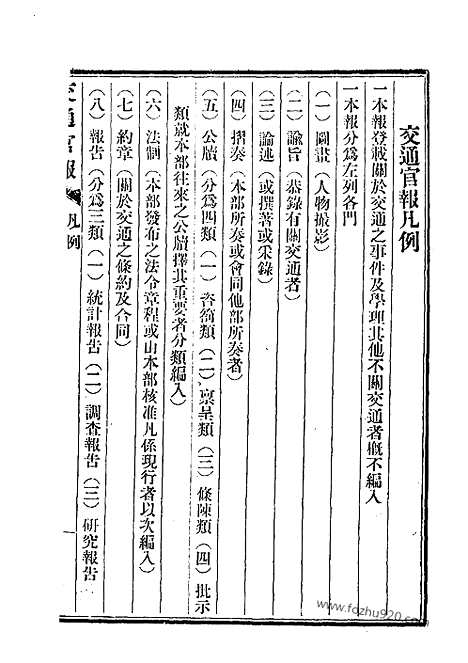 交通官報凡例
一本報登載關於交通之事件及學理其他不關交通者槪不編入
一本報分爲左列各門
(一)圖畫(人物撮影)
(二)諭旨(恭錄有關交通者)
(三)論述(或撰著或采錄)
(四)摺奏(本部所奏或會同他部所奏者)
(五)公牘(分爲四類(一)咨劄類(二)稟呈類(三)條陳類(四)批示
類就本部往來之公牘擇其重要者分類編入)
(六)法制(本部發布之法令章程或由本部核准凡係現行者以次編入)
(七)約章(關於交通之條約及合同)
(八)報告(分爲三類(一)統計報告(二)調查報告(三)研究報告
交通官報 凡例
一
www.fozhu920.com